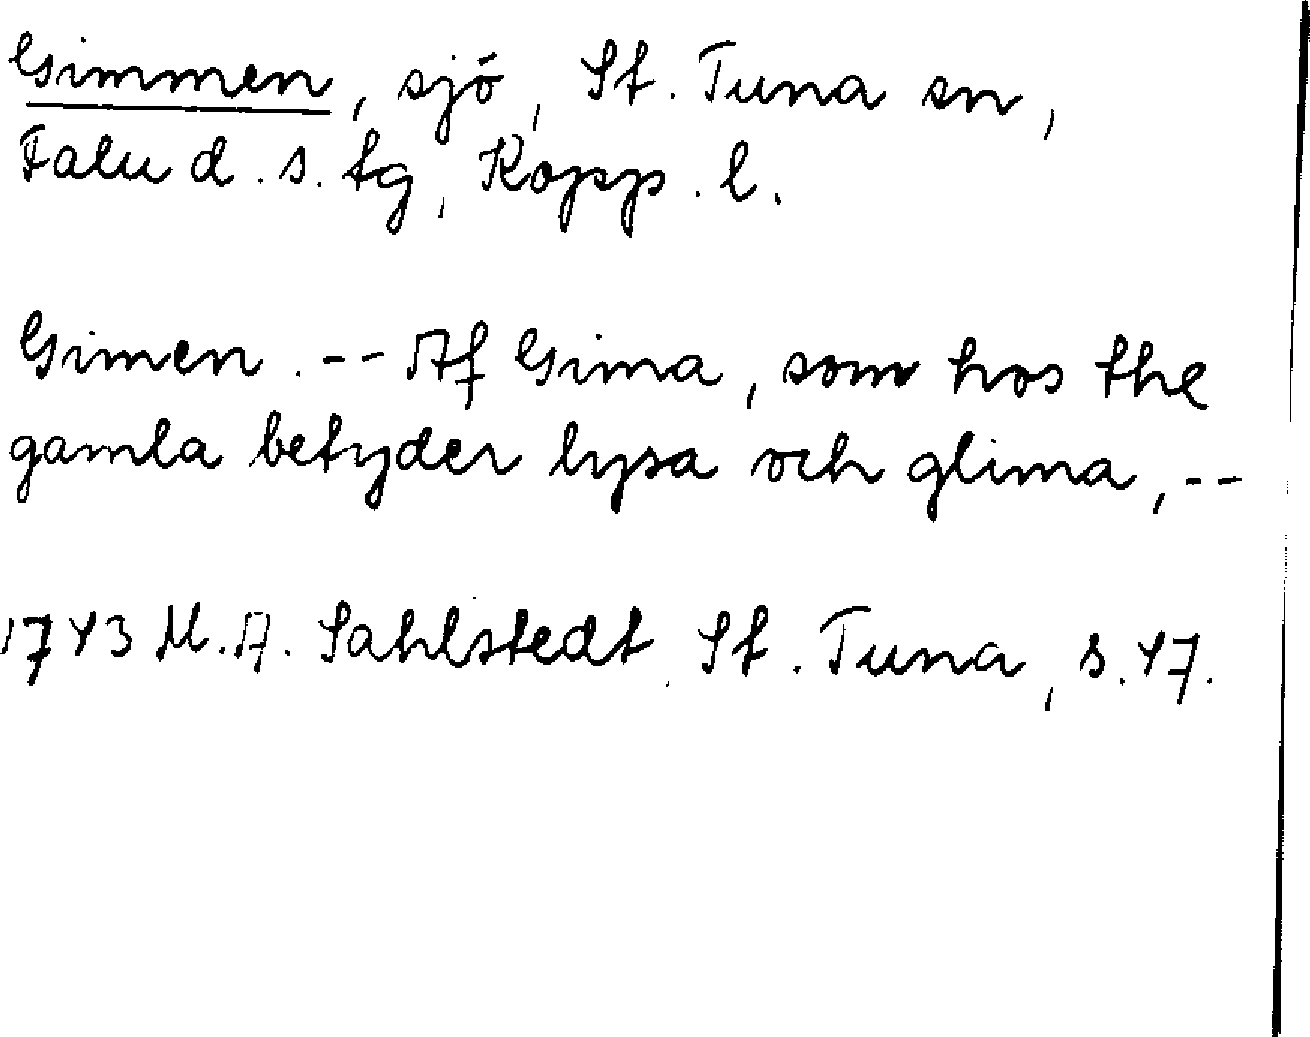 Gimmen, sjö, St. Tuna sn,
Falu d. s. tg, Kopp. l.
Gimen. -- Af Gima, som hos the
gamla betyder lysa och glima, --
1743 M. A. Sahlstedt. St. Tuna, s. 47.